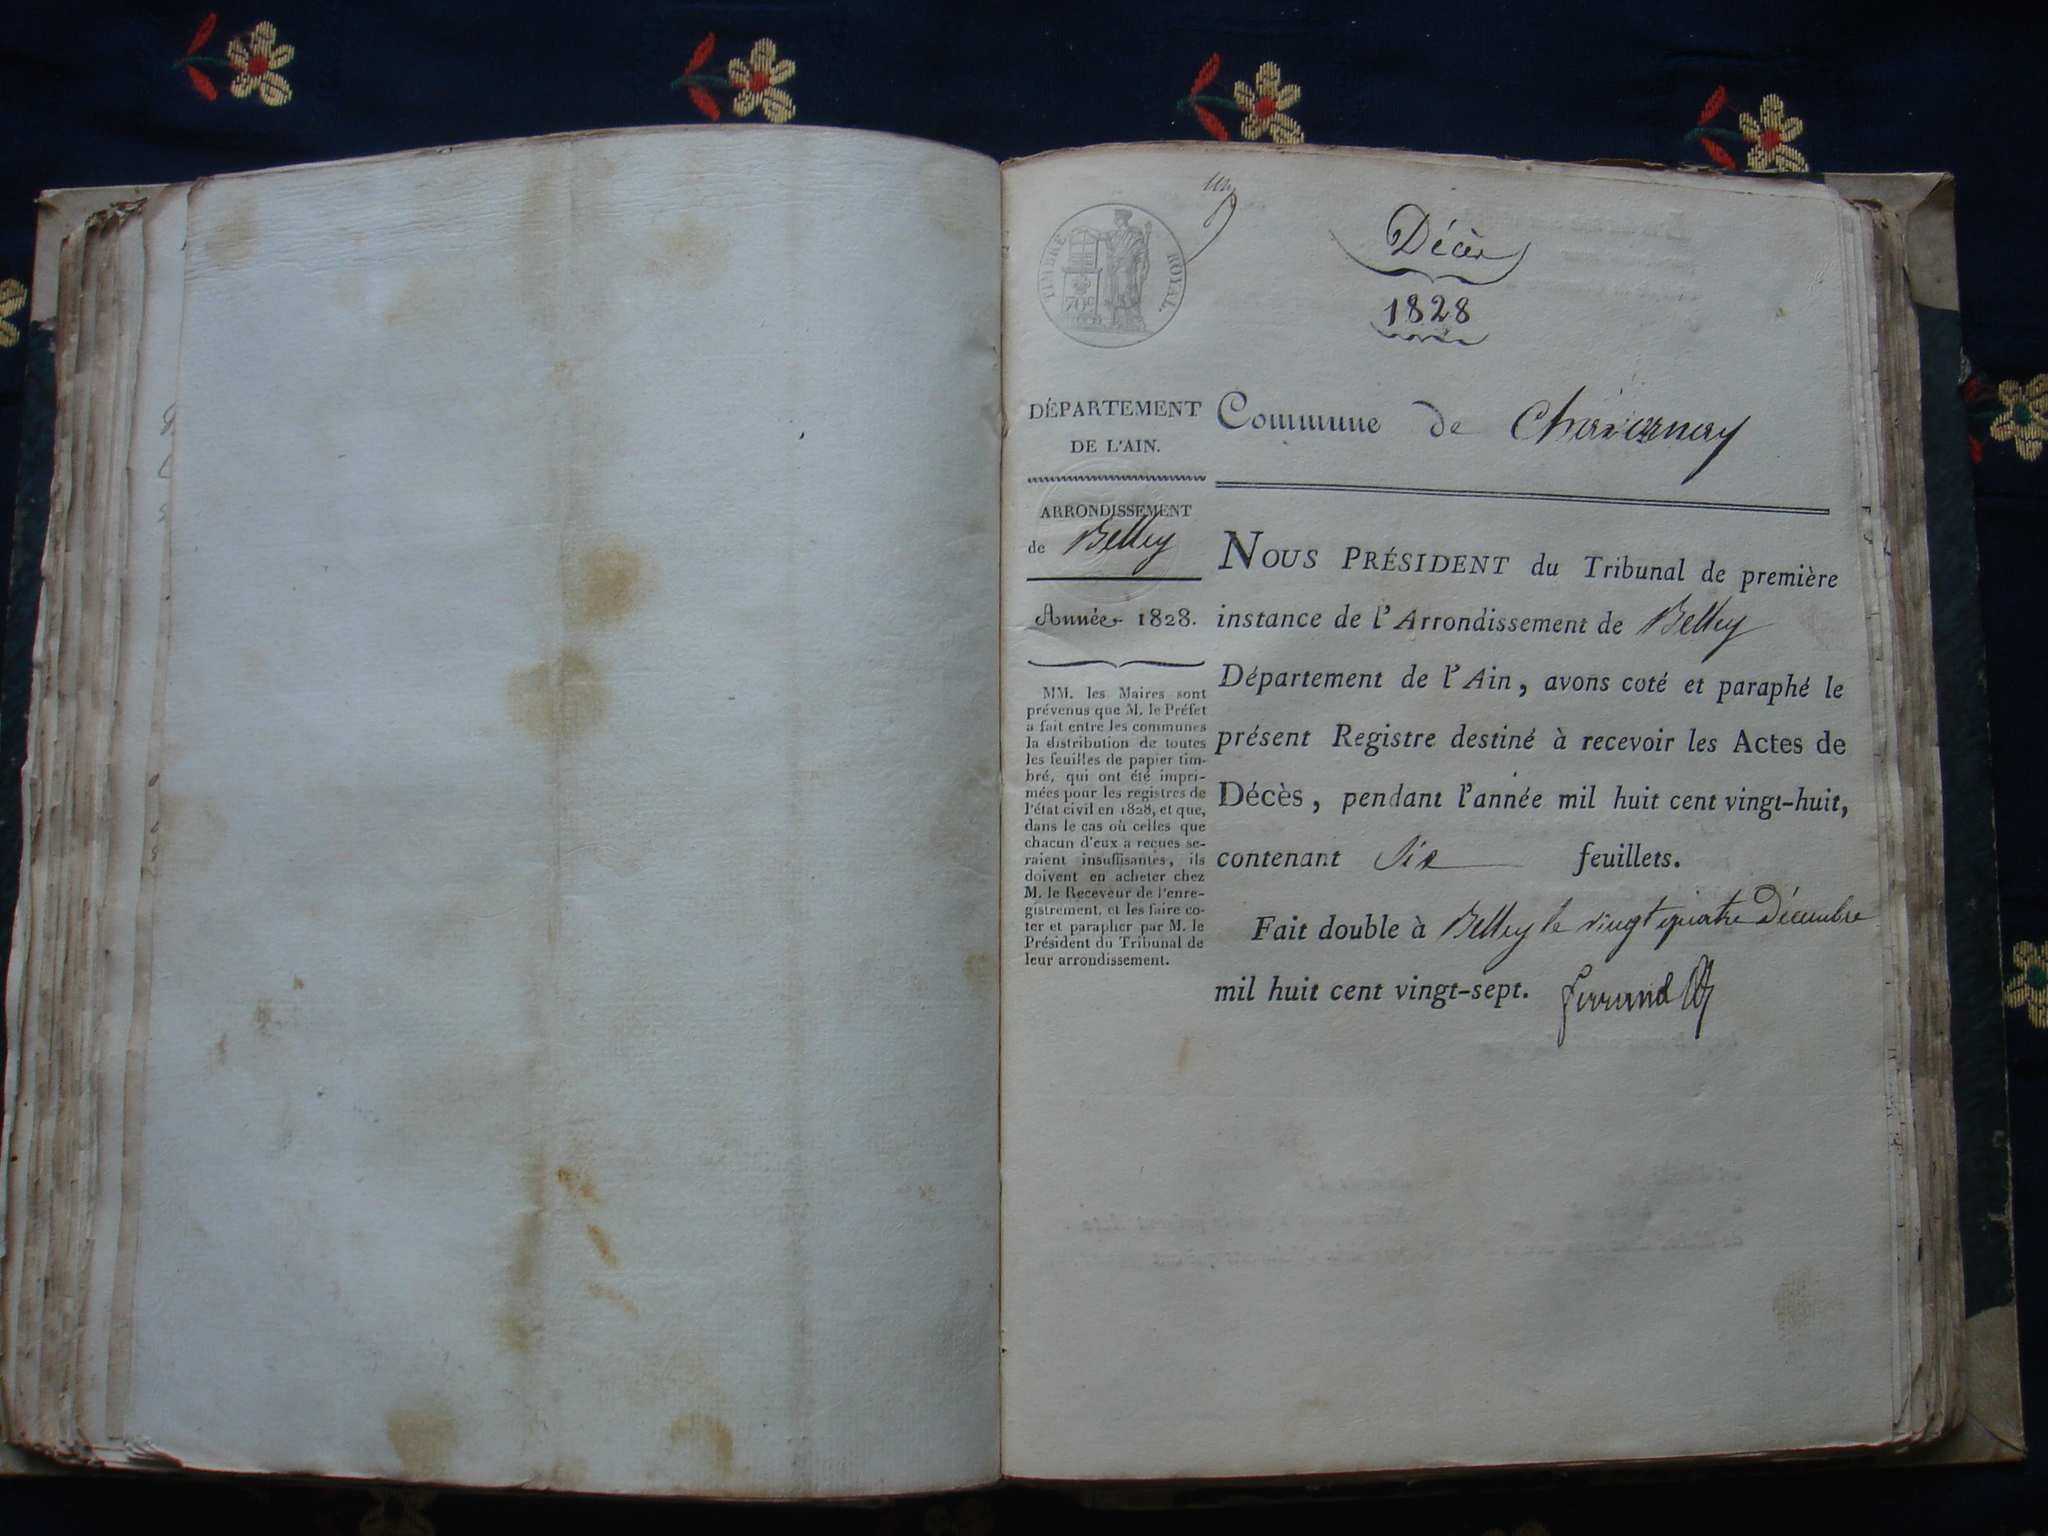 un
TIMBRE ROYAL.
Décès
1828
DÉPARTEMENT
DE L'AIN.
ARRONDISSEMENT
de Belley
Année 1828.
MM. les Maires sont
prévenus que M. le Préfet
a fait entre les communes
la distribution de toutes
les feuilles de papier tim-
bré, qui ont été impri-
mées pour les registres de
l'état civil en 1828, et que,
dans le cas où celles que
chacun d'eux a reçues se-
raient insuffisantes, ils
doivent en acheter chez
M. le Receveur de l'enre-
gistrement, et les faire co-
ter et parapher par M. le
Président du Tribunal de
leur arrondissement.
Commune de Chavornay
NOUS PRÉSIDENT du Tribunal de première
instance de l'Arrondissement de Belley
Département de l'Ain, avons coté et paraphé le
présent Registre destiné à recevoir les Actes de
Décès, pendant l'année mil huit cent vingt-huit,
contenant Six feuillets.
Fait double à Belley le vingt quatre Décembre
mil huit cent vingt-sept.